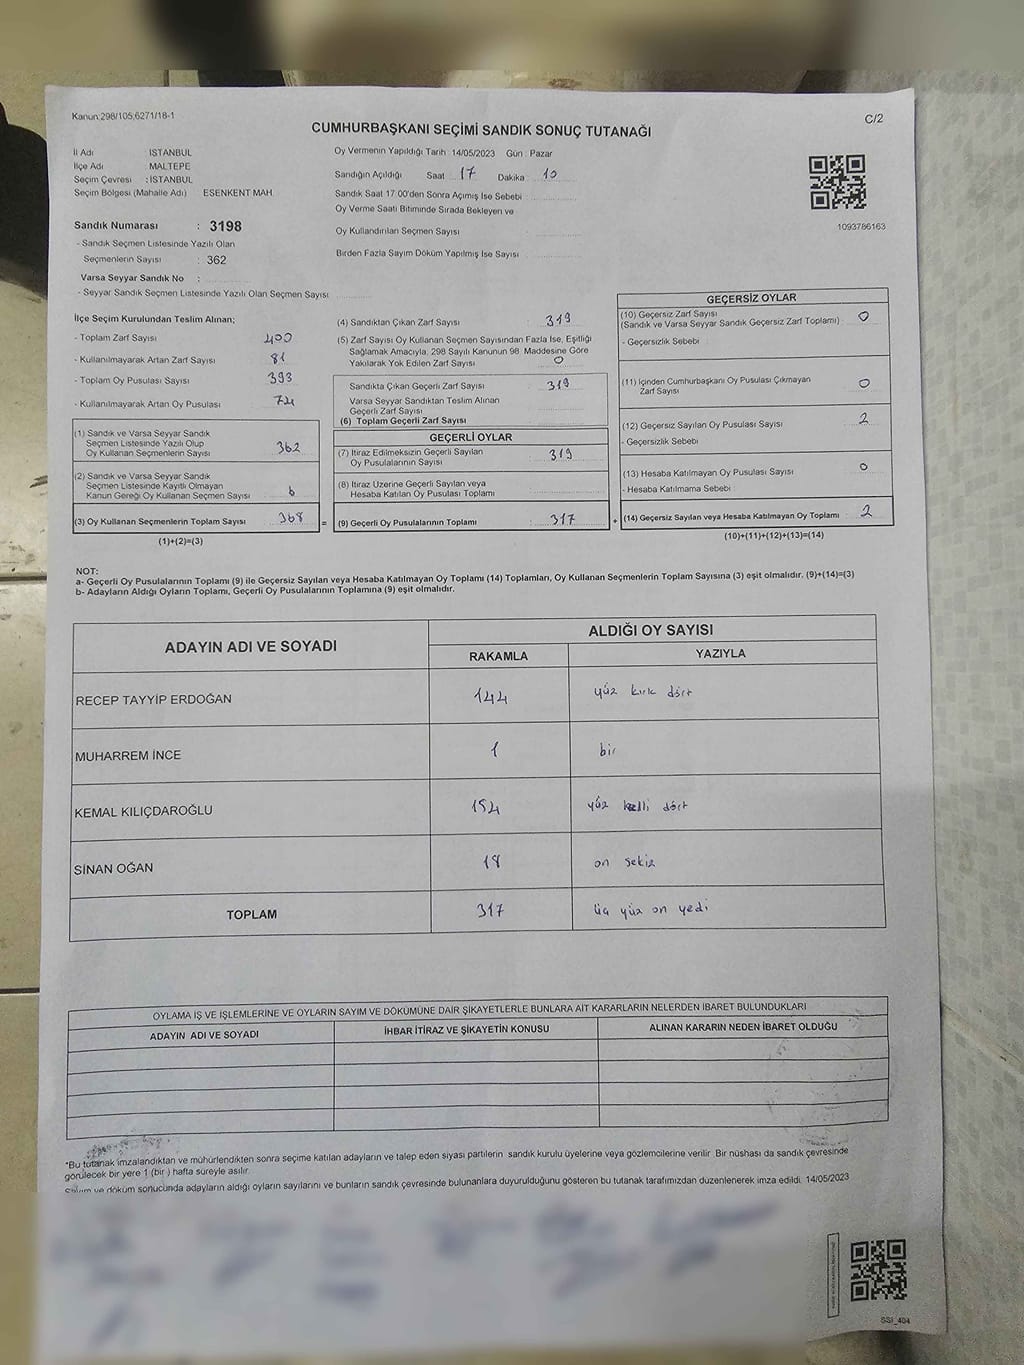 Kanun:298/105,6271/18-1
C/2
CUMHURBAŞKANI SEÇİMİ SANDIK SONUÇ TUTANAĞI
İl Adı İSTANBUL
İlçe Adı MALTEPE
Seçim Çevresi : İSTANBUL
Seçim Bölgesi (Mahalle Adı) ESENKENT MAH.
Sandık Numarası : 3198
- Sandık Seçmen Listesinde Yazılı Olan
Seçmenlerin Sayısı : 362
Varsa Seyyar Sandık No :
- Seyyar Sandık Seçmen Listesinde Yazılı Olan Seçmen Sayısı
Oy Vermenin Yapıldığı Tarih : 14/05/2023 Gün : Pazar
Sandığın Açıldığı Saat 17 Dakika : 10
Sandık Saat 17:00'den Sonra Açımış İse Sebebi :
Oy Verme Saati Bitiminde Sırada Bekleyen ve
Oy Kullandırılan Seçmen Sayısı
Birden Fazla Sayım Döküm Yapılmış İse Sayısı
1093786163
İlçe Seçim Kurulundan Teslim Alınan;
- Toplam Zarf Sayısı 400
- Kullanılmayarak Artan Zarf Sayısı 81
- Toplam Oy Pusulası Sayısı 393
- Kullanılmayarak Artan Oy Pusulası 74
(1) Sandık ve Varsa Seyyar Sandık
Seçmen Listesinde Yazılı Olup
Oy Kullanan Seçmenlerin Sayısı 362
(2) Sandık ve Varsa Seyyar Sandık
Seçmen Listesinde Kayıtlı Olmayan
Kanun Gereği Oy Kullanan Seçmen Sayısı 6
(3) Oy Kullanan Seçmenlerin Toplam Sayısı 368 =
(1)+(2)=(3)
(4) Sandıktan Çıkan Zarf Sayısı : 319
(5) Zarf Sayısı Oy Kullanan Seçmen Sayısından Fazla İse, Eşitliği
Sağlamak Amacıyla, 298 Sayılı Kanunun 98. Maddesine Göre
Yakılarak Yok Edilen Zarf Sayısı 0
Sandıkta Çıkan Geçerli Zarf Sayısı : 319
Varsa Seyyar Sandıktan Teslim Alınan
Geçerli Zarf Sayısı
(6) Toplam Geçerli Zarf Sayısı
GEÇERLİ OYLAR
(7) İtiraz Edilmeksizin Geçerli Sayılan
Oy Pusulalarının Sayısı : 319
(8) İtiraz Üzerine Geçerli Sayılan veya
Hesaba Katılan Oy Pusulası Toplamı
(9) Geçerli Oy Pusulalarının Toplamı : 317 +
GEÇERSİZ OYLAR
(10) Geçersiz Zarf Sayısı
(Sandık ve Varsa Seyyar Sandık Geçersiz Zarf Toplamı) 0
- Geçersizlik Sebebi
(11) İçinden Cumhurbaşkanı Oy Pusulası Çıkmayan
Zarf Sayısı 0
(12) Geçersiz Sayılan Oy Pusulası Sayısı 2
- Geçersizlik Sebebi
(13) Hesaba Katılmayan Oy Pusulası Sayısı 0
- Hesaba Katılmama Sebebi
(14) Geçersiz Sayılan veya Hesaba Katılmayan Oy Toplamı 2
(10)+(11)+(12)+(13)=(14)
NOT:
a- Geçerli Oy Pusulalarının Toplamı (9) ile Geçersiz Sayılan veya Hesaba Katılmayan Oy Toplamı (14) Toplamları, Oy Kullanan Seçmenlerin Toplam Sayısına (3) eşit olmalıdır. (9)+(14)=(3)
b- Adayların Aldığı Oyların Toplamı, Geçerli Oy Pusulalarının Toplamına (9) eşit olmalıdır.
ADAYIN ADI VE SOYADI ALDIĞI OY SAYISI
RAKAMLA YAZIYLA
RECEP TAYYİP ERDOĞAN 144 yüz kırk dört
MUHARREM İNCE 1 bir
KEMAL KILIÇDAROĞLU 154 yüz elli dört
SİNAN OĞAN 18 on sekiz
TOPLAM 317 üç yüz on yedi
OYLAMA İŞ VE İŞLEMLERİNE VE OYLARIN SAYIM VE DÖKÜMÜNE DAİR ŞİKAYETLERLE BUNLARA AİT KARARLARIN NELERDEN İBARET BULUNDUKLARI
ADAYIN ADI VE SOYADI İHBAR İTİRAZ VE ŞİKAYETİN KONUSU ALINAN KARARIN NEDEN İBARET OLDUĞU
*Bu tutanak imzalandıktan ve mühürlendikten sonra seçime katılan adayların ve talep eden siyasi partilerin sandık kurulu üyelerine veya gözlemcilerine verilir. Bir nüshası da sandık çevresinde
görülecek bir yere 1 (bir) hafta süreyle asılır.
Sayım ve döküm sonucunda adayların aldığı oyların sayılarını ve bunların sandık çevresinde bulunanlara duyurulduğunu gösteren bu tutanak tarafımızdan düzenlenerek imza edildi. 14/05/2023
SSI_404